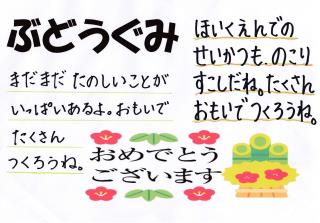 ぶどうぐみ
まだまだ たのしいことが
いっぱいあるよ。おもいで
たくさん
つくろうね。
ほいくえんでの
せいかつも、のこり
すこしだね。たくさん
おもいでつくろうね。
おめでとう
ございます